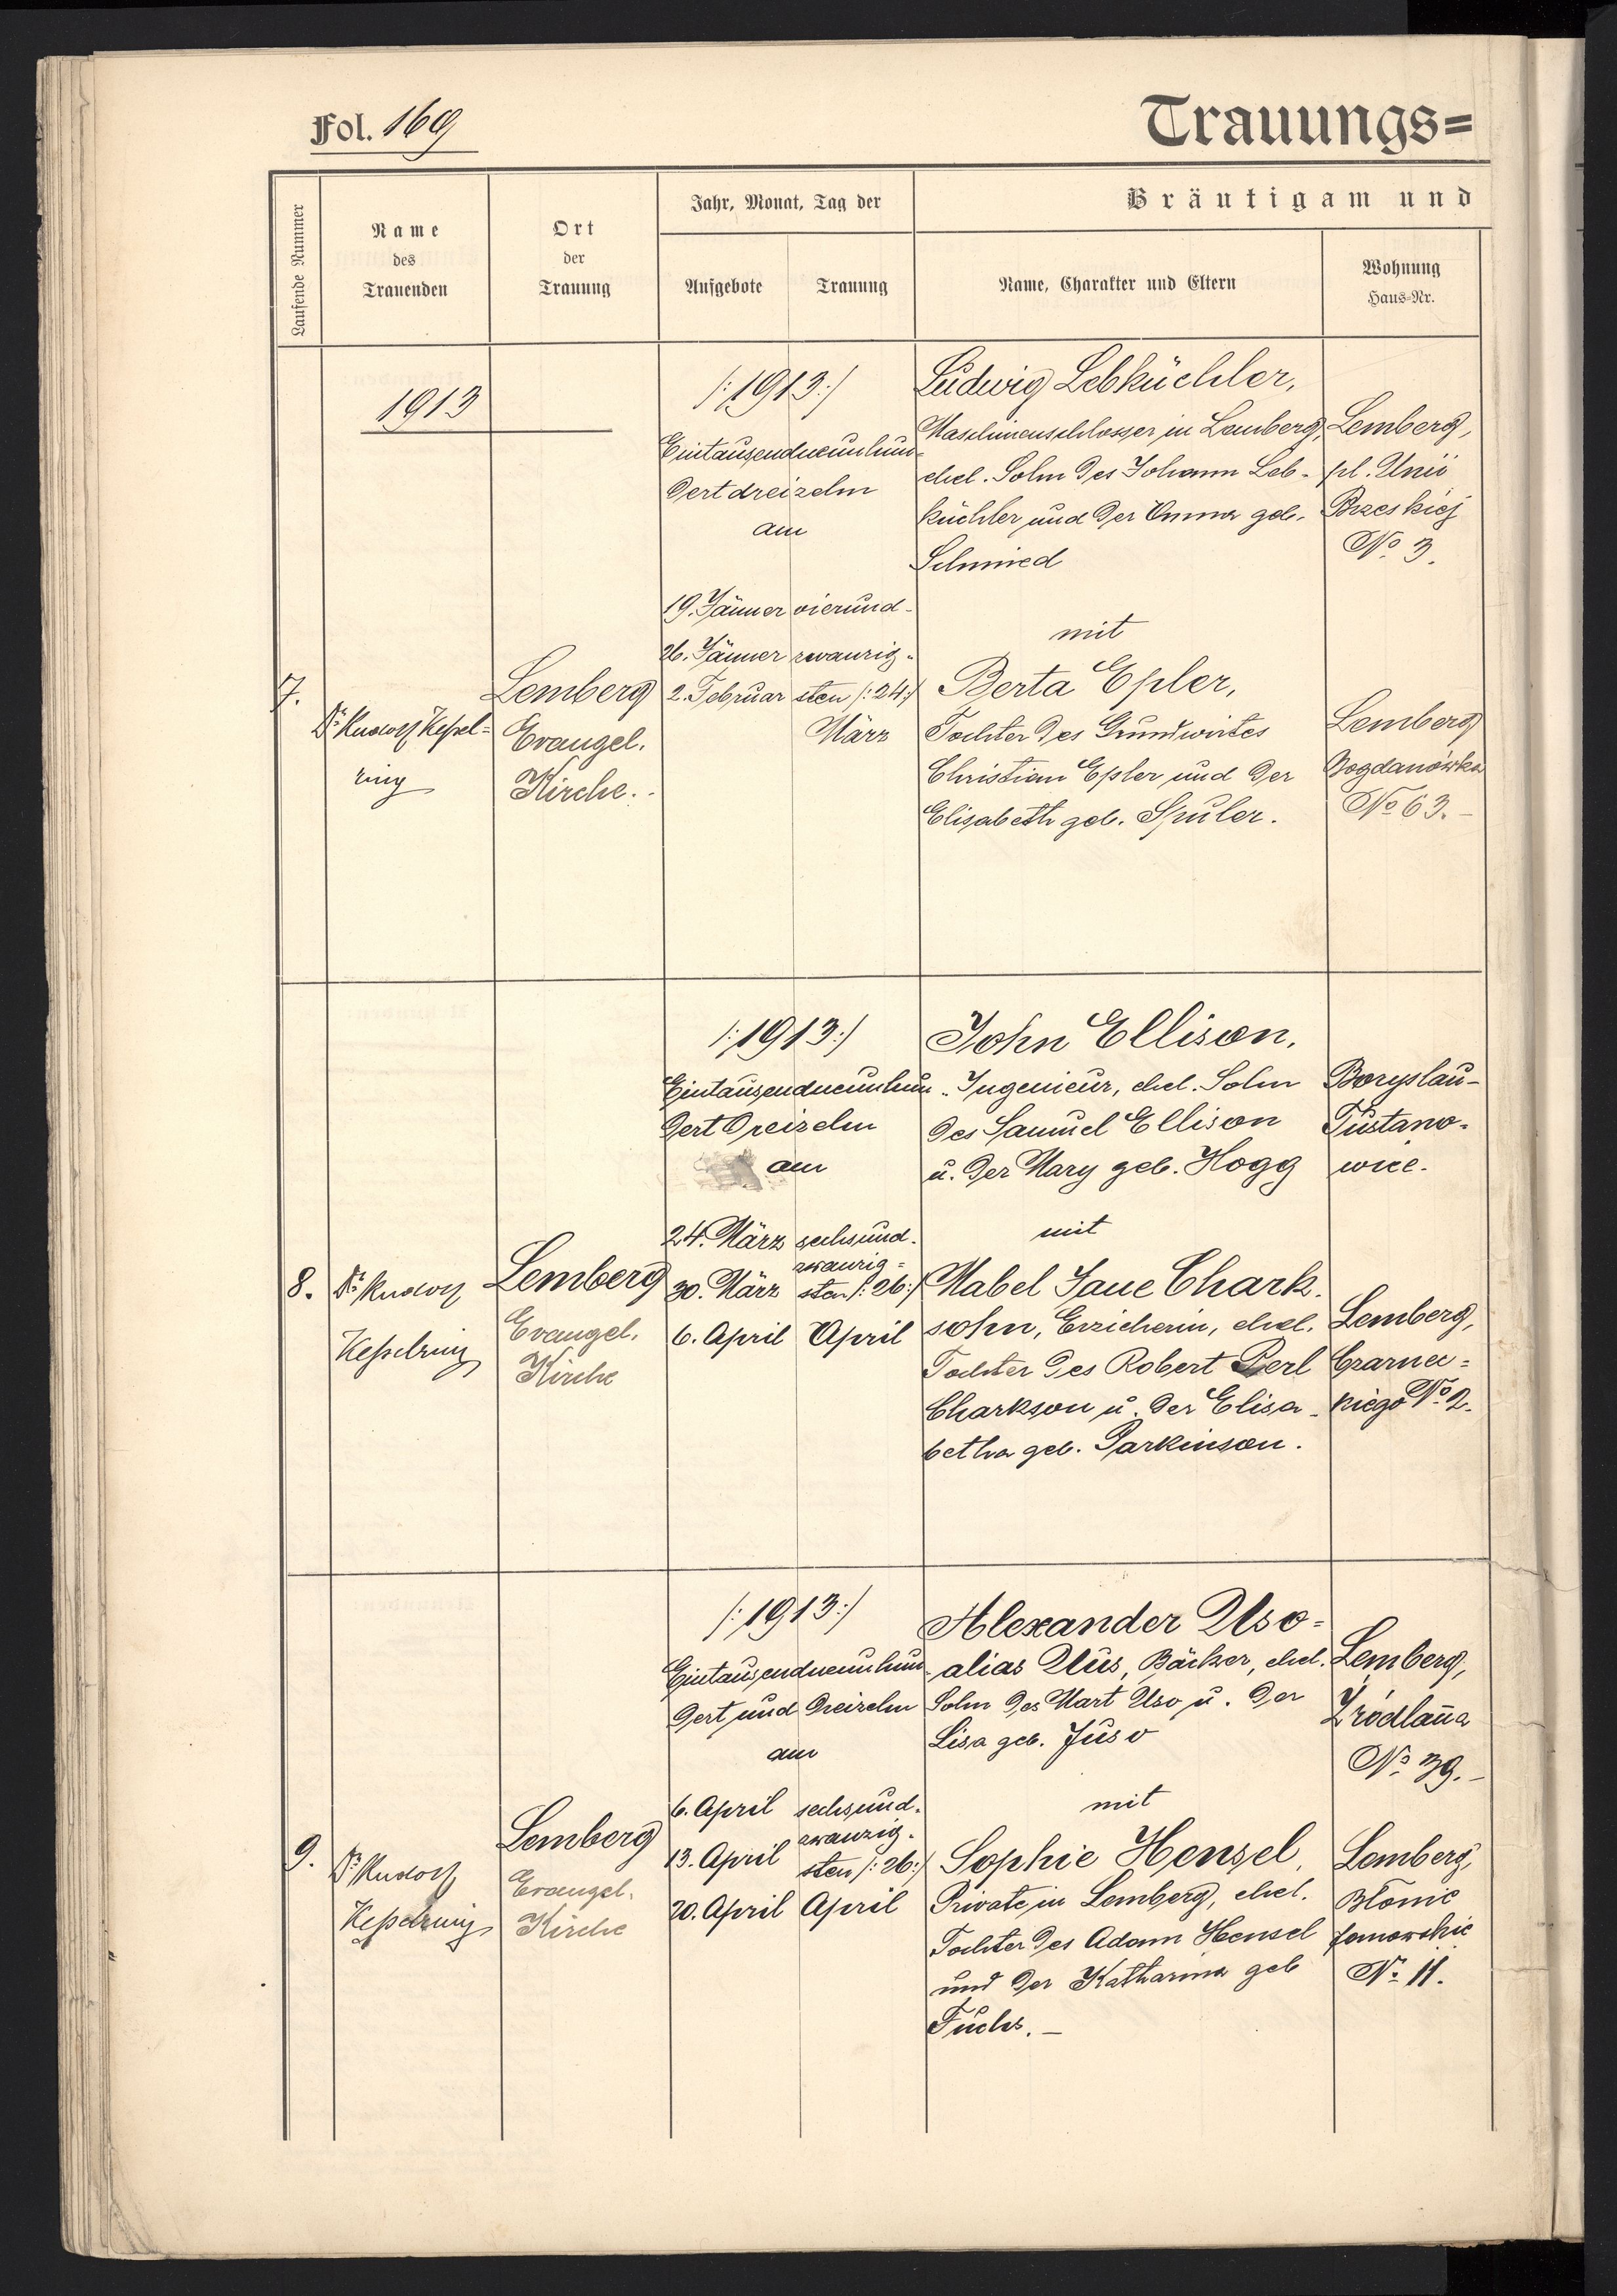 Fol. 169
Trauungs=
Laufende Nummer
Name
des
Trauenden
Ort
der
Trauung
Jahr, Monat, Tag der
Aufgebote
Trauung
Bräutigam und
Name, Charakter und Eltern
Wohnung
Haus=Nr.
1913
7.
Dr. Rudolf Keßel=
ring
Lemberg
Evangel.
Kirche.
/:1913:/
Eintausendneunhun-
dert dreizehn
am
19. Jänner
26. Jänner
2. Februar
vierund-
zwanzig-
sten /:24:/
März
Ludwig Lebküchler,
Maschinenschlosser in Lemberg,
ehel. Sohn des Johann Leb-
küchler und der Emma geb.
Schmied
mit
Berta Epler,
Tochter des Grundwirtes
Christian Epler und der
Elisabeth geb. Spuler.
Lemberg,
pl. Unii
Brzeskiej
No. 3.
Lemberg
Bogdanówka
No 63.-
8.
Dr. Rudolf
Keßelring
Lemberg
Evangel.
Kirche
/:1913:/
Eintausendneunhun-
dert dreizehn
am
24. März
30. März
6. April
sechsund-
zwanzig=
sten /:26:/
April
John Ellison,
Ingenieur, ehel. Sohn
des Samuel Ellison
u. der Mary geb. Hogg
mit
Mabel Jane Chark.
sohn, Erzieherin, ehel.
Tochter des Robert Perl
Charkson u. der Elisa-
betha geb. Parkinson.
Boryslau-
Tustano-
wice.
Lemberg,
Czarnec=
kiego No. 2.
9.
Dr. Rudolf
Keßelring
Lemberg
Evangel.
Kirche
/:1913:/
Eintausendneunhun-
dert und dreizehn
am
6. April
13. April
20. April
sechsund-
zwanzig-
sten /:26:/
April
Alexander Uso=
alias Uus, Bäcker, ehel.
Sohn des Mart Uso u. der
Lisa geb. Juso
mit
Sophie Hensel,
Private in Lemberg, ehel.
Tochter des Adam Hensel
und der Katharina geb
Fuchs.-
Lemberg,
Źródlana
No. 39.-
Lemberg,
Błonie
Janowskie
No. 11.